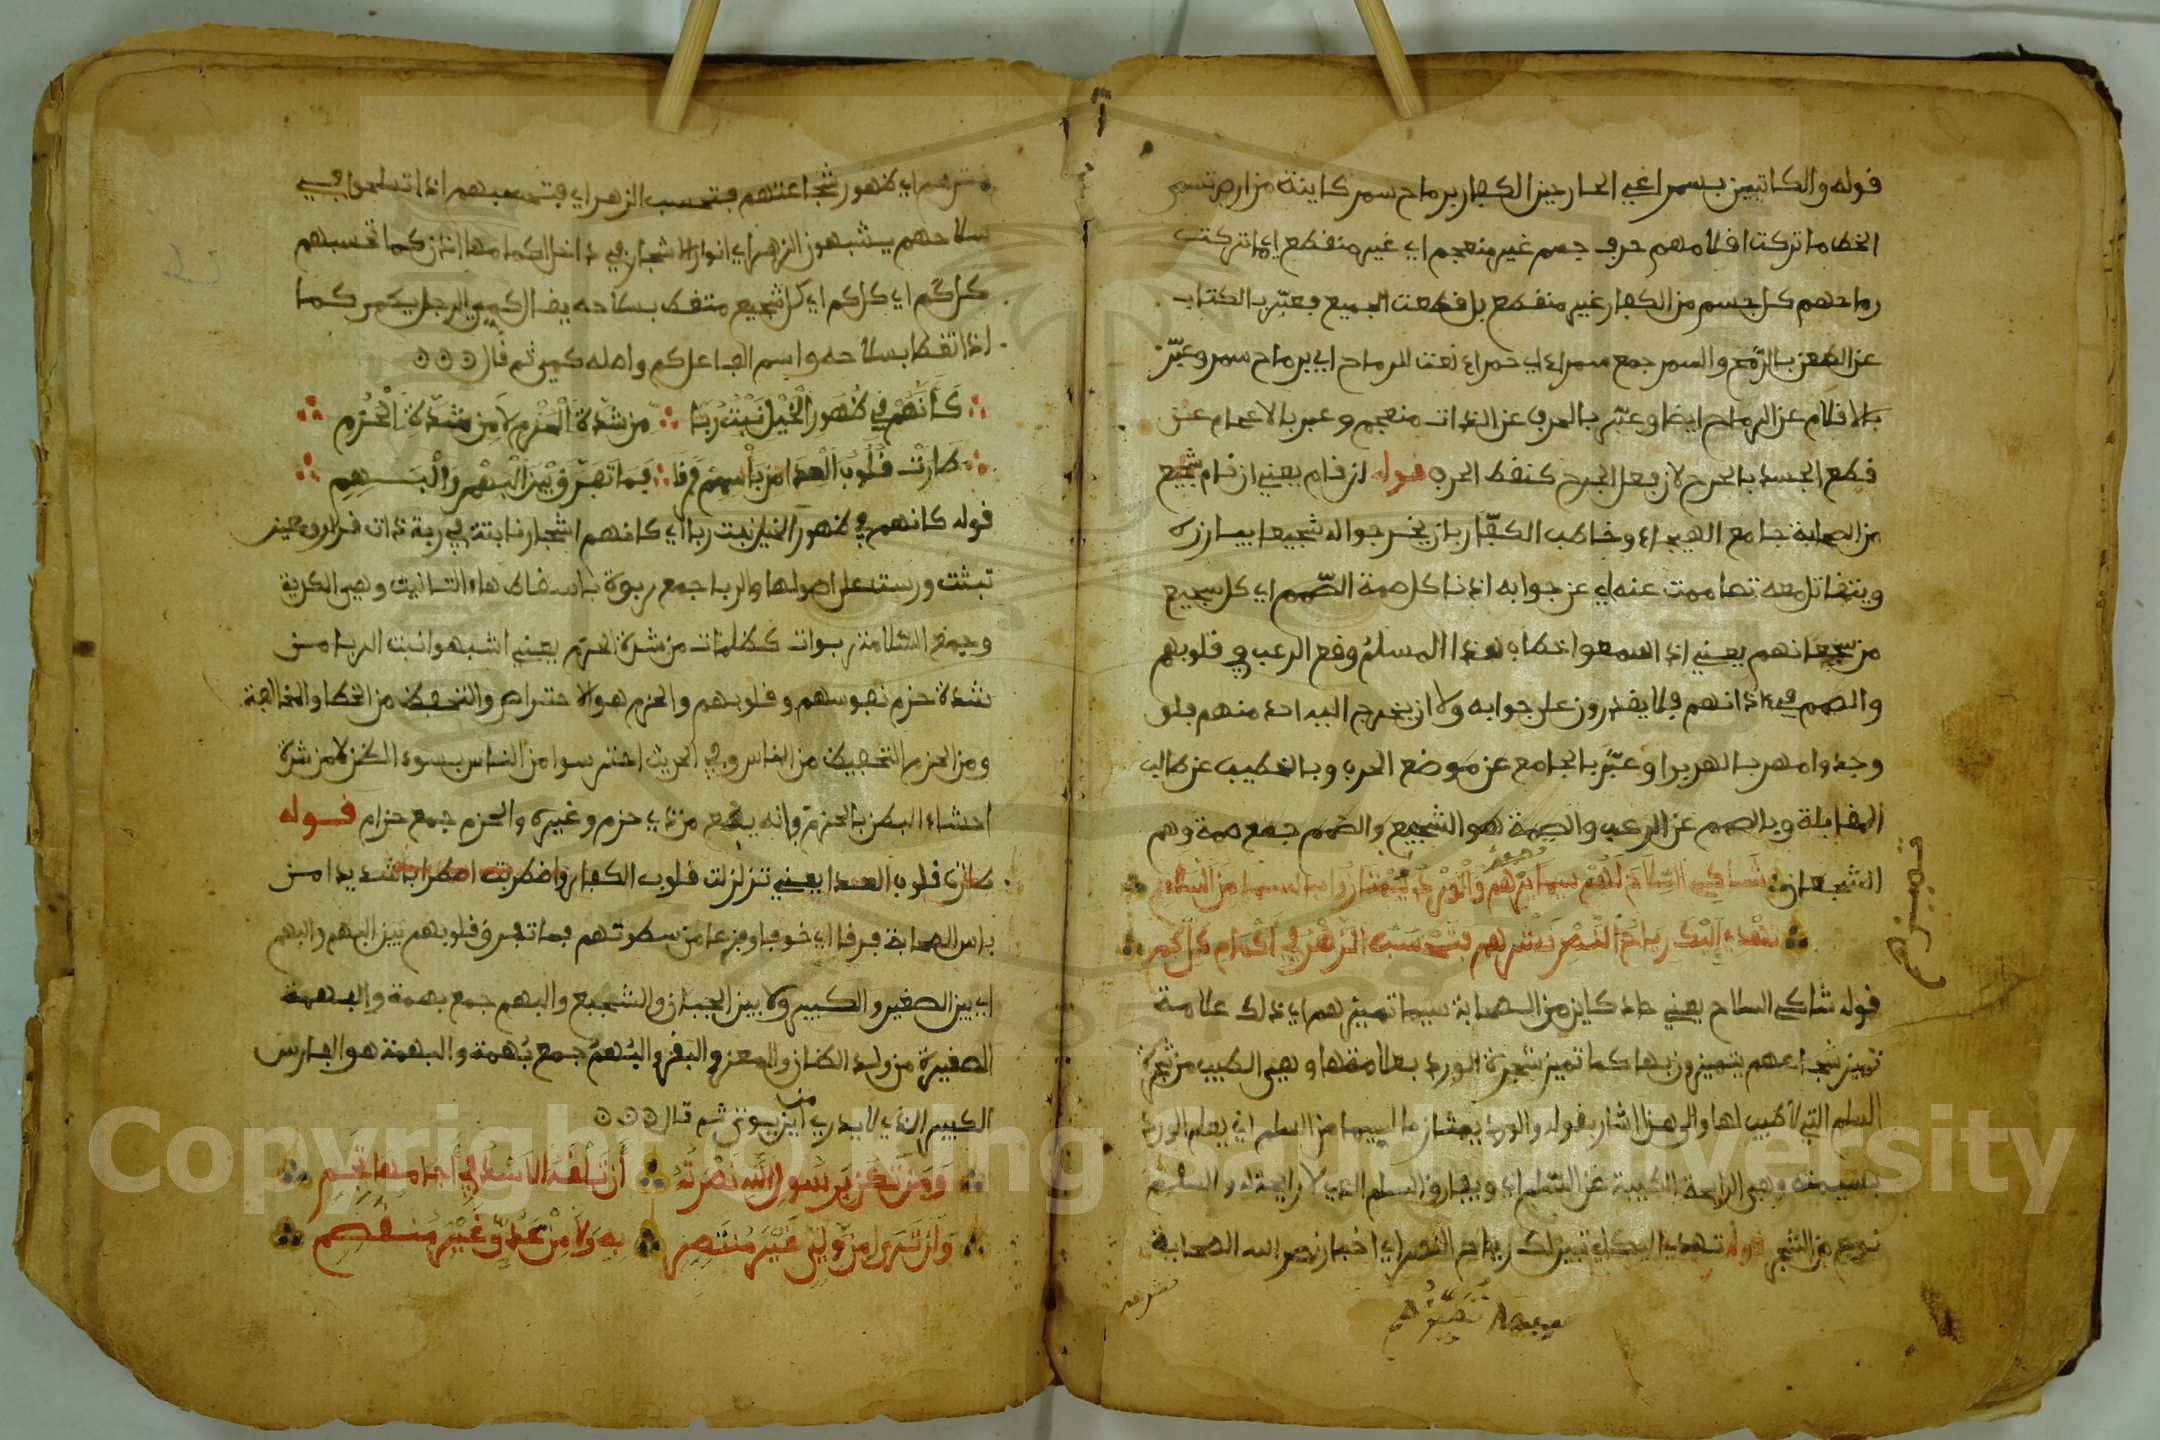 قوله والكاتبين بسمر اعني الضاربين الكفار برماح سمر كاينة من ارض تسمى
الخط ما تركت اقلامهم حرف جسم غير منعجم اي غير منقطع اي ما تركت
رماحهم كل جسم من الكفار غير منقطع بل قطعت الجميع فعبّر بالكتاب
عن الطعن بالرّمح والسمر جمع سمراء اي حمراء نعت للرماح اي برماح سمر وعبّر
بالاقلام عن الرماح ايضا وعبّر بالحرف عن الذات منعجم وعبر بالاعجام عن
قطع الجسد بالجرح لان فعل الجرح كنقط الحرف قوله ان قام يعني ان قام شجيع
من الصحابة جامع الهيجاء وخاطب الكفّار بان يخرجوا له شجيعا يبارزه
ويتقاتل معه تصاممت عنه اي عن جوابه اذنا كل صمة الصّمم اي كل شجيع
من شجعانهم يعني اذا سمعوا خطاب هذا المسلم وقع الرعب في قلوبهم
والصمم في ءاذانهم فلا يقدرون على جوابه ولا ان يخرج اليه احد منهم فلو
وجدوا مهربا لهربوا وعبّر بالجامع عن موضع الحرب وبالخطيب عن طالب
المقابلة وبالصمم عن الرعب والصمة هو الشجيع والصمم جمع صمة وهم
الشجعان شاكي السّلاح لهم سيما تميزهم والورد يمتاز بالسيما من السّلم
تهدي اليك رياح النّصر نشرهم فتحسب الزهر في اكمام كل كم
قوله شاكي السلاح يعني حاد كاين من الصحابة سيما تميزهم اي ذلك علامة
تميز شجاعهم يتميزون بها كما تميز شجرة الورد بعلامتها وهي الطيب من شجرة
السلم التي لا طيب لها والى هذا اشار بقوله والورد يمتاز بالسيما من السلم اي يعلم الورد
بسيمته وهي الرايحة الطيبة عن السّلم اي ويفارق السلم الذي لا رايحة له والسلم
نوع من الشجر قوله تهدي اليك اي تبين لك رياح النصر اي اخبار نصر الله الصحابة
نشرهم
تميزهم
نشرهم اي ظهور شجاعتهم فتحسب الزهر اي فتحسبهم اذا تسلحوا في
سلاحهم يشبهون الزهر اي انوار الاشجار في داخل اكمامها اذن كما تحسبهم
كل كم اي كل كم اي كل شجيع متغط بسلاحه يقال كمي الرجل يكمي كما
اذا تغطا بسلاحه واسم الفاعل كم واصله كمي ثم قال
كأنهم في ظهور الخيل نبت ربا من شدّة الحزم لا من شدّة الحُزُم
طارت قلوب العدا من بأسهم فرقا فما تفرّق بين البَهْم والبُهَم
قوله كانهم في ظهور الخيل نبت ربا اي كانهم اشجار نابتة في ربة ذات قرار ومعين
تبثت ورست على اصولها والربا جمع ربوة باسقاط هاء التانيث وهي الكرية
وجمع السلامة ربوات كظلمات من شدة الحزم يعني اشبهوا نبت الربا من
شدة حزم نفوسهم وقلوبهم والحزم هو الاحتراص والتحفظ من الخطا والمخالفة
ومن الحزم التحفيظ من الناس وفي الحريث احترسوا من الناس بسوء الظن لا من شدة
احشاء البطن بالحزم فإنه يقع من ذي حزم وغيره والحزم جمع حزام قوله
طارت قلوب العدا يعني تزلزلت قلوب الكفار واضطربت اضطرابا شديدا من
باس الصحابة فرقا اي خوفا وفزعا من سطوتهم فما تفرق قلوبهم بين البهم والبهم
اي بين الصغير والكبير ولا بين الجبان والشجيع والبهم جمع بهمة والبهمة
الصغيرة من ولد الضان والمعز والبقر والبُهمُ جمع بُهمة والبهمة هو الفارس
الكبير الذي لا يدري من اين يوتى ثم قال
ومن تكن برسول الله نصرته أن تلقه الاسد في أجامها تجم
ولن ترى من ولي غير منتصر به ولا من عدوّ غير منقصم
Copyright © King Saud University